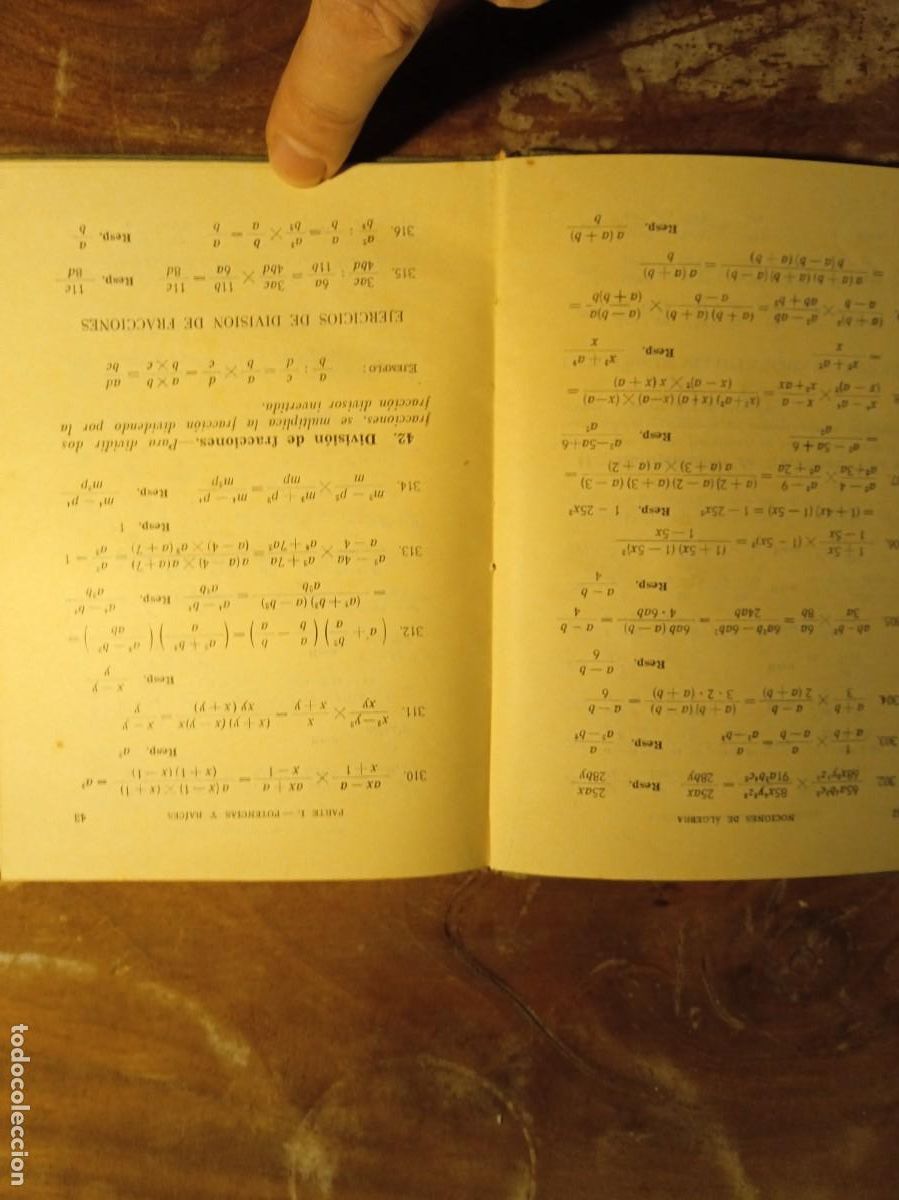 2 NOCIONES DE ÁLGEBRA
302. = 25ax/28by Resp. 25ax/28by
303. 1/(a + b) × a/(a − b) = a/(a² − b²) Resp. a/(a² − b²)
304. (a + b)/3 × (a − b)/(2 (a + b)) = ((a + b) (a − b))/(3 · 2 · (a + b)) = (a − b)/6
Resp. (a − b)/6
305 (ab − b²)/3a × 6a/8b = (6a²b − 6ab²)/24ab = (6ab (a − b))/(4 · 6ab) = (a − b)/4
Resp. (a − b)/4
06. (1 + 5x)/(1 − 5x) × (1 − 5x)² = ((1 + 5x) (1 − 5x)²)/(1 − 5x)
= (1 + 4x) (1 − 5x) = 1 − 25x² Resp. 1 − 25x²
07 (a² − 4)/(a² + 3a) × (a² − 9)/(a² + 2a) = ((a + 2) (a − 2) (a + 3) (a − 3))/(a (a + 3) × a (a + 2)) =
= (a² − 5a + 6)/a² Resp. (a² − 5a + 6)/a²
(x⁴ − a⁴)/(x − a)² × (x − a)/(x² + ax) = ((x² + a²) (x + a) (x − a) × (x − a))/((x − a)² × x (x + a)) =
= (x² + a²)/x Resp. (x² + a²)/x
(a + b)²/(a − b) × (a² − ab)/(ab + b²) = ((a + b) (a + b))/(a − b) × ((a − b)a)/((a + b)b) =
= (a (a + b) (a + b) (a − b))/(b (a − b) (a + b)) = (a (a + b))/b
Resp. (a (a + b))/b
PARTE I. — POTENCIAS Y RAÍCES 43
310. (ax − a)/(x + 1) × (ax + a)/(x − 1) = (a (x − 1) × (x + 1))/((x + 1) (x − 1)) = a²
Resp. a²
311. (x² − y²)/xy × x/(x + y) = ((x + y) (x − y)x)/(xy (x + y)) = (x − y)/y
Resp. (x − y)/y
312. (a + b²/a) (a/b − b/a) = ((a² + b²)/a) ((a² − b²)/ab) =
= ((a² + b²) (a² − b²))/a²b = (a⁴ − b⁴)/a²b Resp. (a⁴ − b⁴)/a²b
313. (a² − 4a)/(a − 4) × (a² + 7a)/(a³ + 7a²) = (a (a − 4) × a (a + 7))/((a − 4) × a² (a + 7)) = a²/a² = 1
Resp. 1
314. (m² − p²)/m × (m² + p²)/mp = (m⁴ − p⁴)/m²p Resp. (m⁴ − p⁴)/m²p
42. División de fracciones. — Para dividir dos
fracciones, se multiplica la fracción dividendo por la
fracción divisor invertida.
EJEMPLO: a/b : c/d = a/b × d/c = (a × b)/(b × c) = ad/bc
EJERCICIOS DE DIVISION DE FRACCIONES
315. 3ac/4bd : 6a/11b = 3ac/4bd × 11b/6a = 11c/8d Resp. 11c/8d
316. a²/b² : a/b = a²/b² × b/a = a/b Resp. a/b
todocoleccion